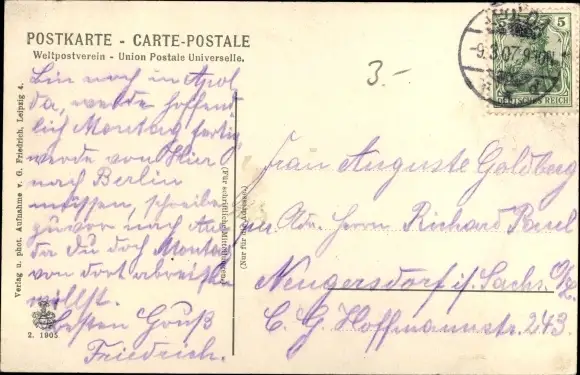 POSTKARTE - CARTE-POSTALE
Weltpostverein - Union Postale Universelle.
Bin noch in Apol
da, werde hoffent
lich Montag fertig,
werde von Hier
nach Berlin
müssen, schreibe
zuvor nach
da Du doch Montag
von dort abreisen
willst.
besten Gruß
Friedrich.
2. 1905
Verlag u. phot. Aufnahme v. G. Friedrich, Leipzig 4.
(Für schriftliche Mitteilungen.)
(Nur für die Adresse.)
3.-
APOLDA
-9.3.07. 9-10N.
5
DEUTSCHES REICH
Frau Auguste Goldberg
Adr. Herrn Richard
Neugersdorf i. Sachs. O/L.
C. G. Hoffmannstr. 243.